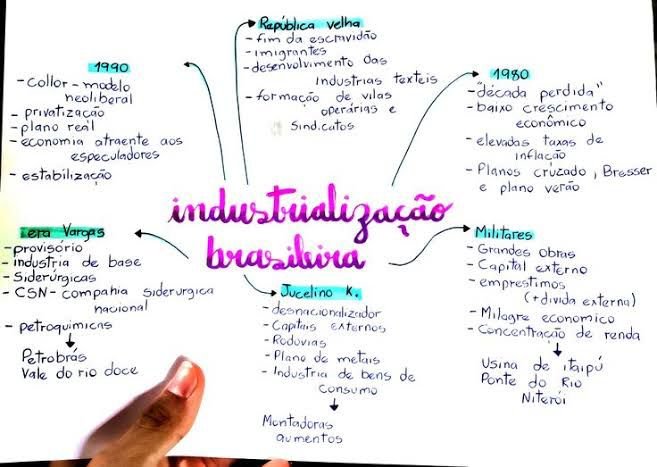 República velha
- fim da escravidão
- imigrantes
- desenvolvimento das
industrias texteis
- formação de vilas
operárias e
sindicatos
1990
- collor - modelo
neoliberal
- privatização
- plano real
- economia atraente aos
especuladores
- estabilização
1980
- "década perdida"
- baixo crescimento
econômico
- elevadas taxas de
inflação
- Planos cruzado, Bresser
e plano verão
industrialização
brasileira
Era Vargas
- provisório
- industria de base
- Siderúrgicas
- CSN - compahia siderurgica
nacional
- petroquimicas
Petrobrás
Vale do rio doce
Jucelino K.
- desnacionalizador
- Capitais externos
- Rodovias
- Plano de metais
- Industria de bens de
consumo
Montadoras
aumentos
Militares
- Grandes obras
- Capital externo
- emprestimos
(+ divida externa)
- Milagre economico
- Concentração de renda
Usina de itaipú
Ponte do Rio
Niterói